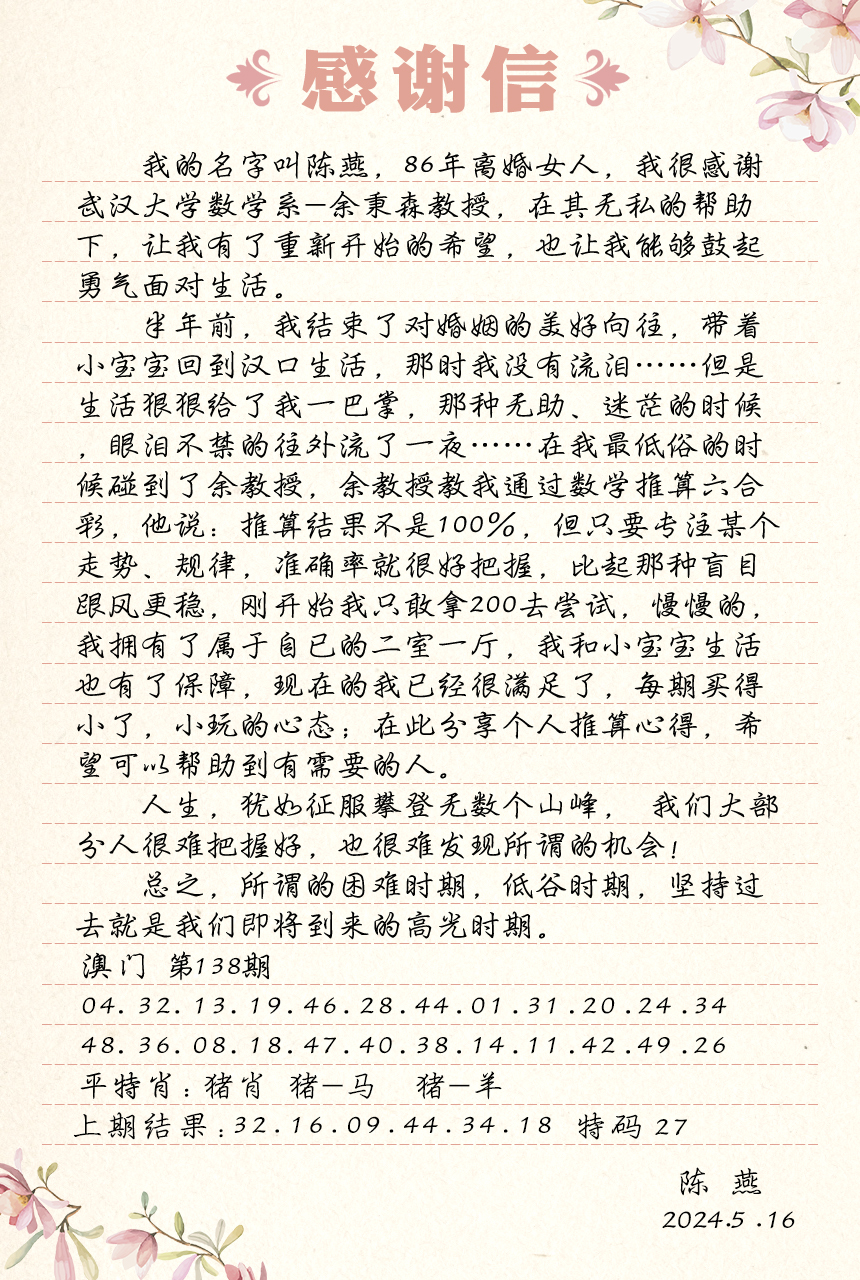 感谢信
我的名字叫陈燕，86年离婚女人，我很感谢
武汉大学数学系—余秉森教授，在其无私的帮助
下，让我有了重新开始的希望，也让我能够鼓起
勇气面对生活。
半年前，我结束了对婚姻的美好向往，带着
小宝宝回到汉口生活，那时我没有流泪……但是
生活狠狠给了我一巴掌，那种无助、迷茫的时候
，眼泪不禁的往外流了一夜……在我最低俗的时
候碰到了余教授，余教授教我通过数学推算六合
彩，他说：推算结果不是100%，但只要专注某个
走势、规律，准确率就很好把握，比起那种盲目
跟风更稳，刚开始我只敢拿200去尝试，慢慢的，
我拥有了属于自已的二室一厅，我和小宝宝生活
也有了保障，现在的我已经很满足了，每期买得
小了，小玩的心态；在此分享个人推算心得，希
望可以帮助到有需要的人。
人生，犹如征服攀登无数个山峰， 我们大部
分人很难把握好，也很难发现所谓的机会！
总之，所谓的困难时期，低谷时期，坚持过
去就是我们即将到来的高光时期。
澳门 第138期
04.32.13.19.46.28.44.01.31.20.24.34
48.36.08.18.47.40.38.14.11.42.49.26
平特肖：猪肖 猪—马 猪—羊
上期结果：32.16.09.44.34.18 特码 27
陈 燕
2024.5.16